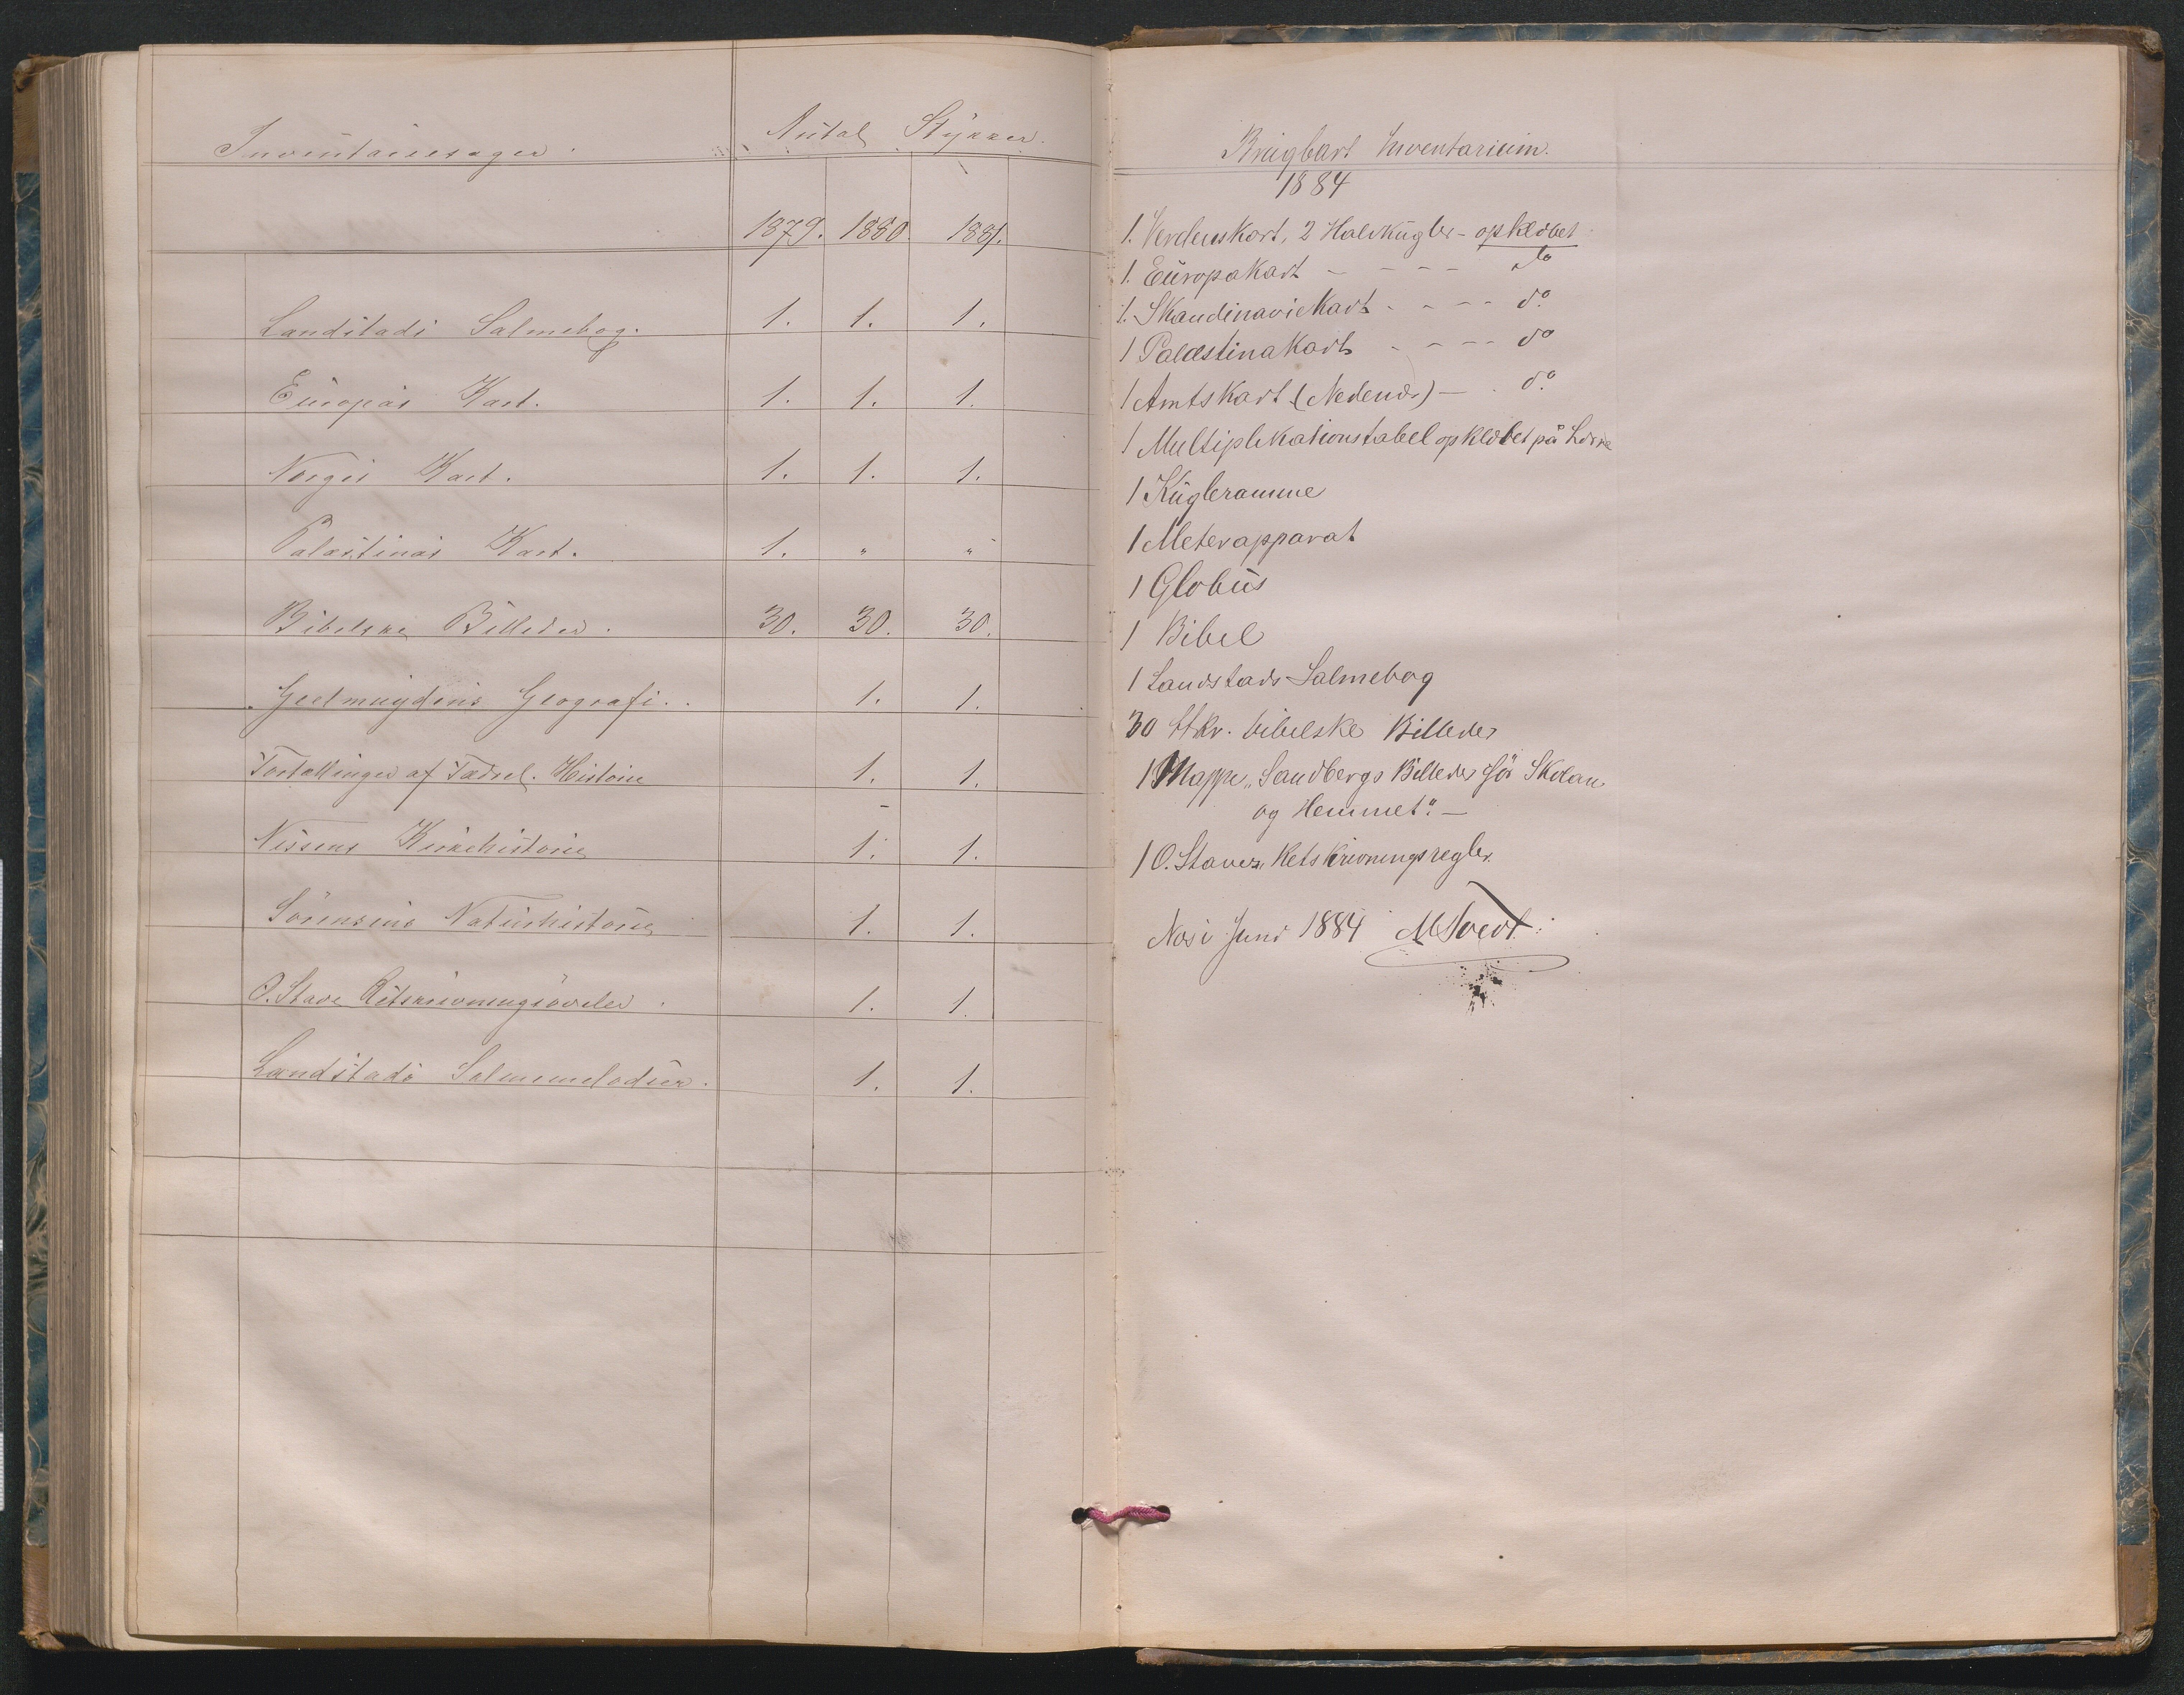 Inventariesager. Antal Stykker.
1879. 1880. 1881.
Landstads Salmebog. 1. 1. 1.
Europas Kart. 1. 1. 1.
Norges Kart. 1. 1. 1.
Palæstinas Kart. 1. " "
Bibelske Billeder. 30. 30. 30.
Geelmuydens Geografi. 1. 1.
Fortællinger af Fædrel. Historie 1. 1.
Nissens Kirkehistorie 1. 1.
Sörensens Naturhistorie 1. 1.
O. Stave Retskrivningsövelser. 1. 1.
Landstads Salmemelodier. 1. 1.
Brugbart Inventarium.
1884
1. Verdenskort, 2 Halvkugler - opklæbet
1. Europakart - - - - do
1. Skandinaviekart - - - - do.
1 Palæstinakart - - - - do
1 Amtskart (Nedenæs) - - do.
1 Multiplikationstabel opklæbet på
1 Kugleramme
1 Meterapparat
1 Globus
1 Bibel
1 Landstads Salmebog
30 Stkr. bibelske Billeder
1 Mappe „Sandbergs Billeder för Skolan
og Hemmet". -
1 O. Staves Retskrivningsregler.
Juni 1884